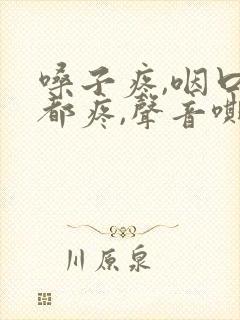 嗓子疼,咽口
都疼,聲音嘶
川原泉